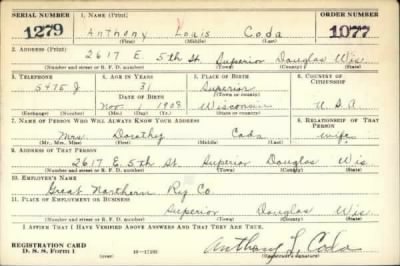 SERIAL NUMBER 1. NAME (Print) ORDER NUMBER
1279 Anthony Louis Coda 1077
(First) (Middle) (Last)
2. ADDRESS (Print)
2617 E 5th St Superior Douglas Wis.
(Number and street or R. F. D. number) (Town) (County) (State)
3. TELEPHONE 4. AGE IN YEARS 5. PLACE OF BIRTH 6. COUNTRY OF CITIZENSHIP
5475 J 31 Superior
DATE OF BIRTH (Town or county)
Nov. 1908 Wisconsin U.S.A
(Exchange) (Number) (Mo.) (Day) (Yr.) (State or country)
7. NAME OF PERSON WHO WILL ALWAYS KNOW YOUR ADDRESS 8. RELATIONSHIP OF THAT PERSON
Mrs. Dorothy Coda wife
(Mr., Mrs., Miss) (First) (Middle) (Last)
9. ADDRESS OF THAT PERSON
2617 E. 5th St. Superior Douglas Wis.
(Number and street or R. F. D. number) (Town) (County) (State)
10. EMPLOYER'S NAME
Great Northern Ry Co.
11. PLACE OF EMPLOYMENT OR BUSINESS
Superior Douglas Wis.
(Number and street or R. F. D. number) (Town) (County) (State)
I AFFIRM THAT I HAVE VERIFIED ABOVE ANSWERS AND THAT THEY ARE TRUE.
REGISTRATION CARD Anthony L. Coda
D. S. S. Form 1 (Registrant's signature)